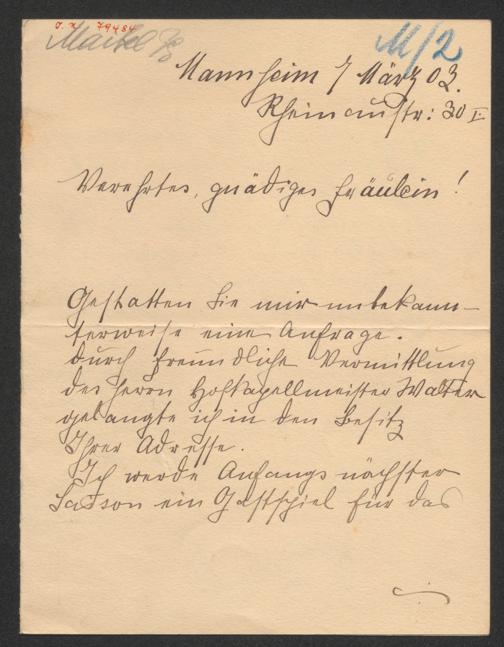 J. N. 79484
M/2
Mannheim 7 März 03.
Rheinaustr: 30 I.
Verehrtes, gnädiges Fräulein!
Gestatten Sie mir unbekann-
terweise eine Anfrage.
Durch freundliche Vermittlung
des Herrn Hofkapellmeister Walter
gelangte ich in den Besitz
Ihrer Adresse.
Ich werde Anfangs nächster
Saison ein Gastspiel für das